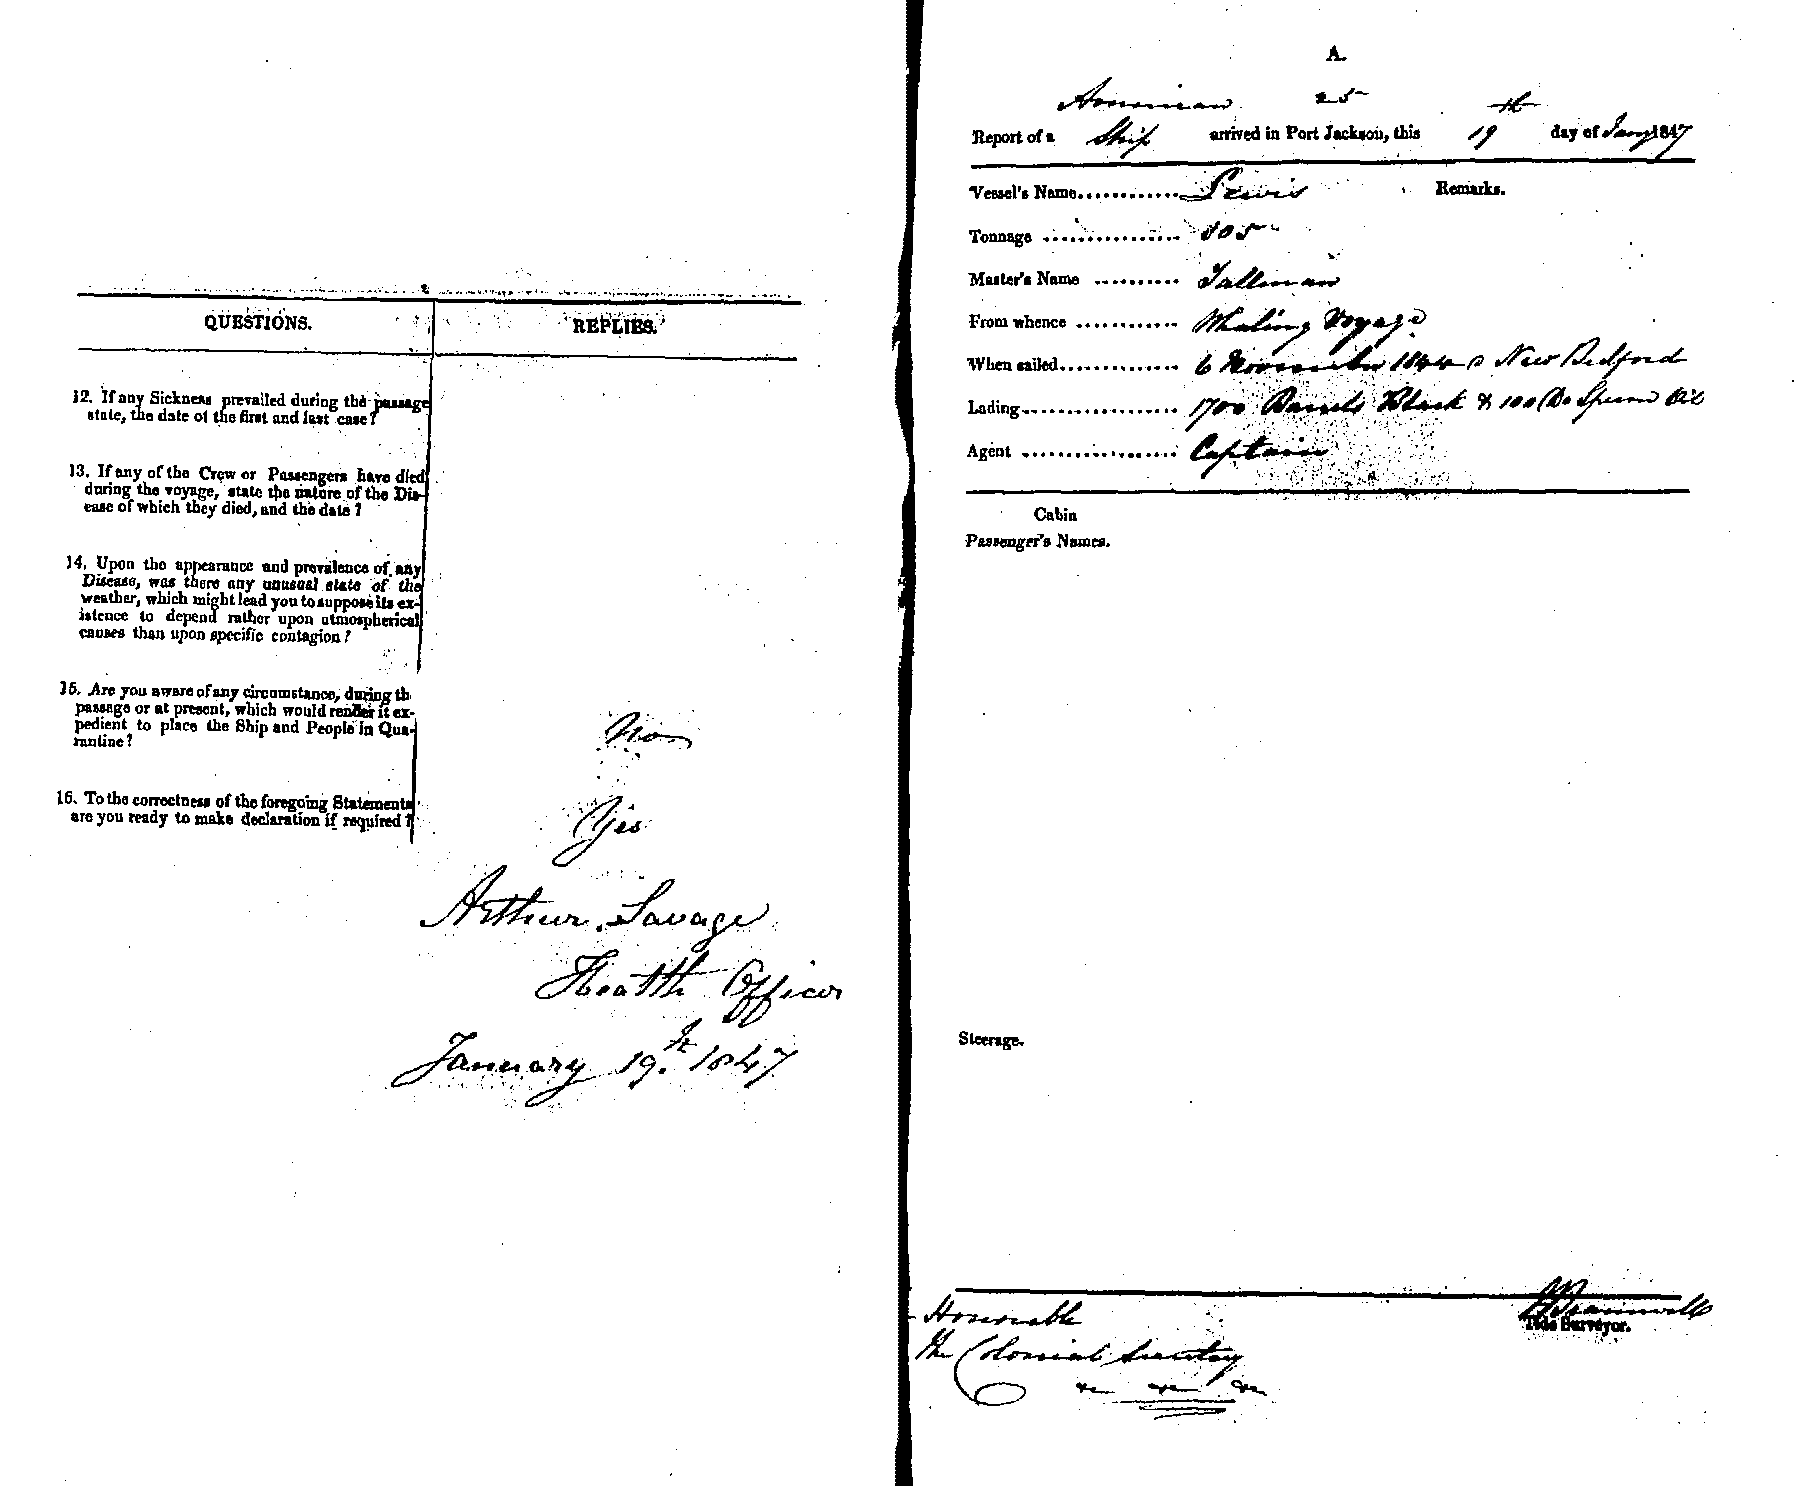 QUESTIONS. REPLIES.
12. If any Sickness prevailed during the passage
state, the date of the first and last case?
13. If any of the Crew or Passengers have died
during the voyage, state the nature of the Dis-
ease of which they died, and the date?
14. Upon the appearance and prevalence of any
Disease, was there any unusual state of the
weather, which might lead you to suppose its ex-
istence to depend rather upon atmospherical
causes than upon specific contagion?
15. Are you aware of any circumstance, during th
passage or at present, which would render it ex-
pedient to place the Ship and People in Qua-
rantine?
No
16. To the correctness of the foregoing Statements
are you ready to make declaration if required?
Yes
Arthur Savage
Health Officer
January 19th 1847
A.
American 25
Report of a Ship arrived in Port Jackson, this 19th day of Jany 1847
Vessel's Name............ Lewis Remarks.
Tonnage ................ 305
Master's Name .......... Tallman
From whence ............ Whaling Voyage
When sailed.............. 6 November 1844 New Bedford
Lading.................... 1700 Barrels Black & 100 Do Sperm Oil
Agent .................... Captain
Cabin
Passenger's Names.
Steerage.
Bramwell
Tide Surveyor.
Honorable
The Colonial Secretary
&c &c &c